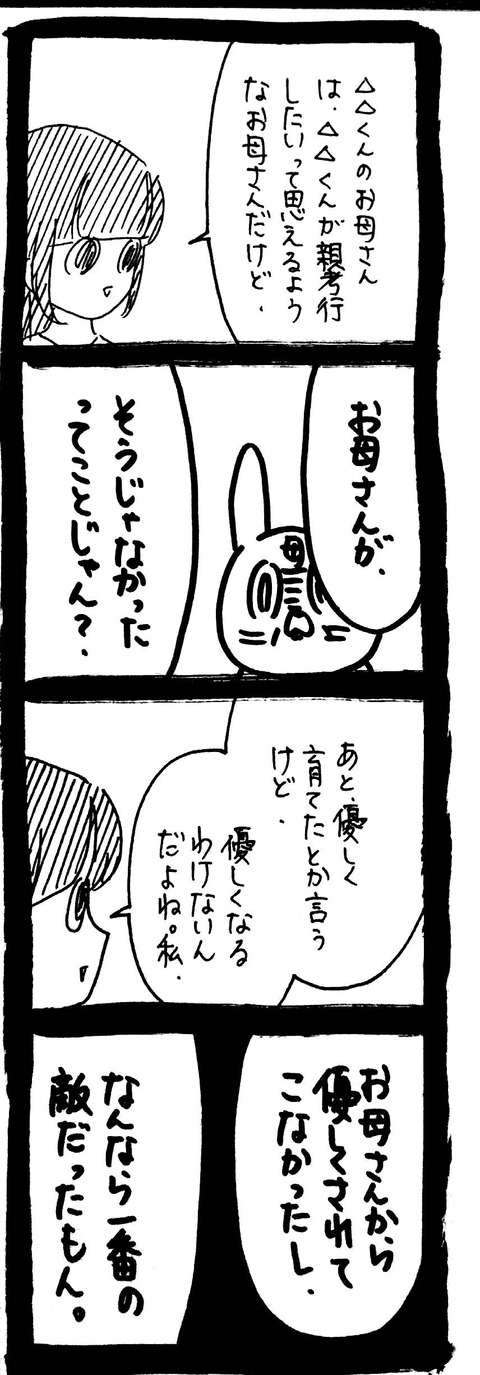 △△くんのお母さん
は、△△くんが親孝行
したいって思えるよう
なお母さんだけど、
お母さんが、
母
そうじゃなかった
ってことじゃん？、
あと、優しく
育てたとか言う
けど、
優しくなる
わけないん
だよね。私、
お母さんから
優しくされて
こなかったし、
なんなら一番の
敵だったもん。